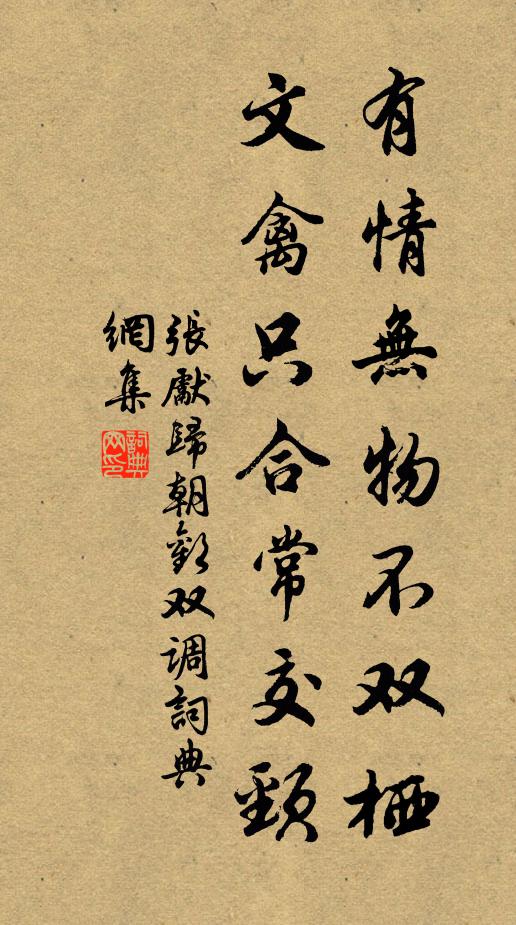 有情無物不双栖
文禽只合常交頸
張獻歸朝歡双调詞典
網集
詞典網印